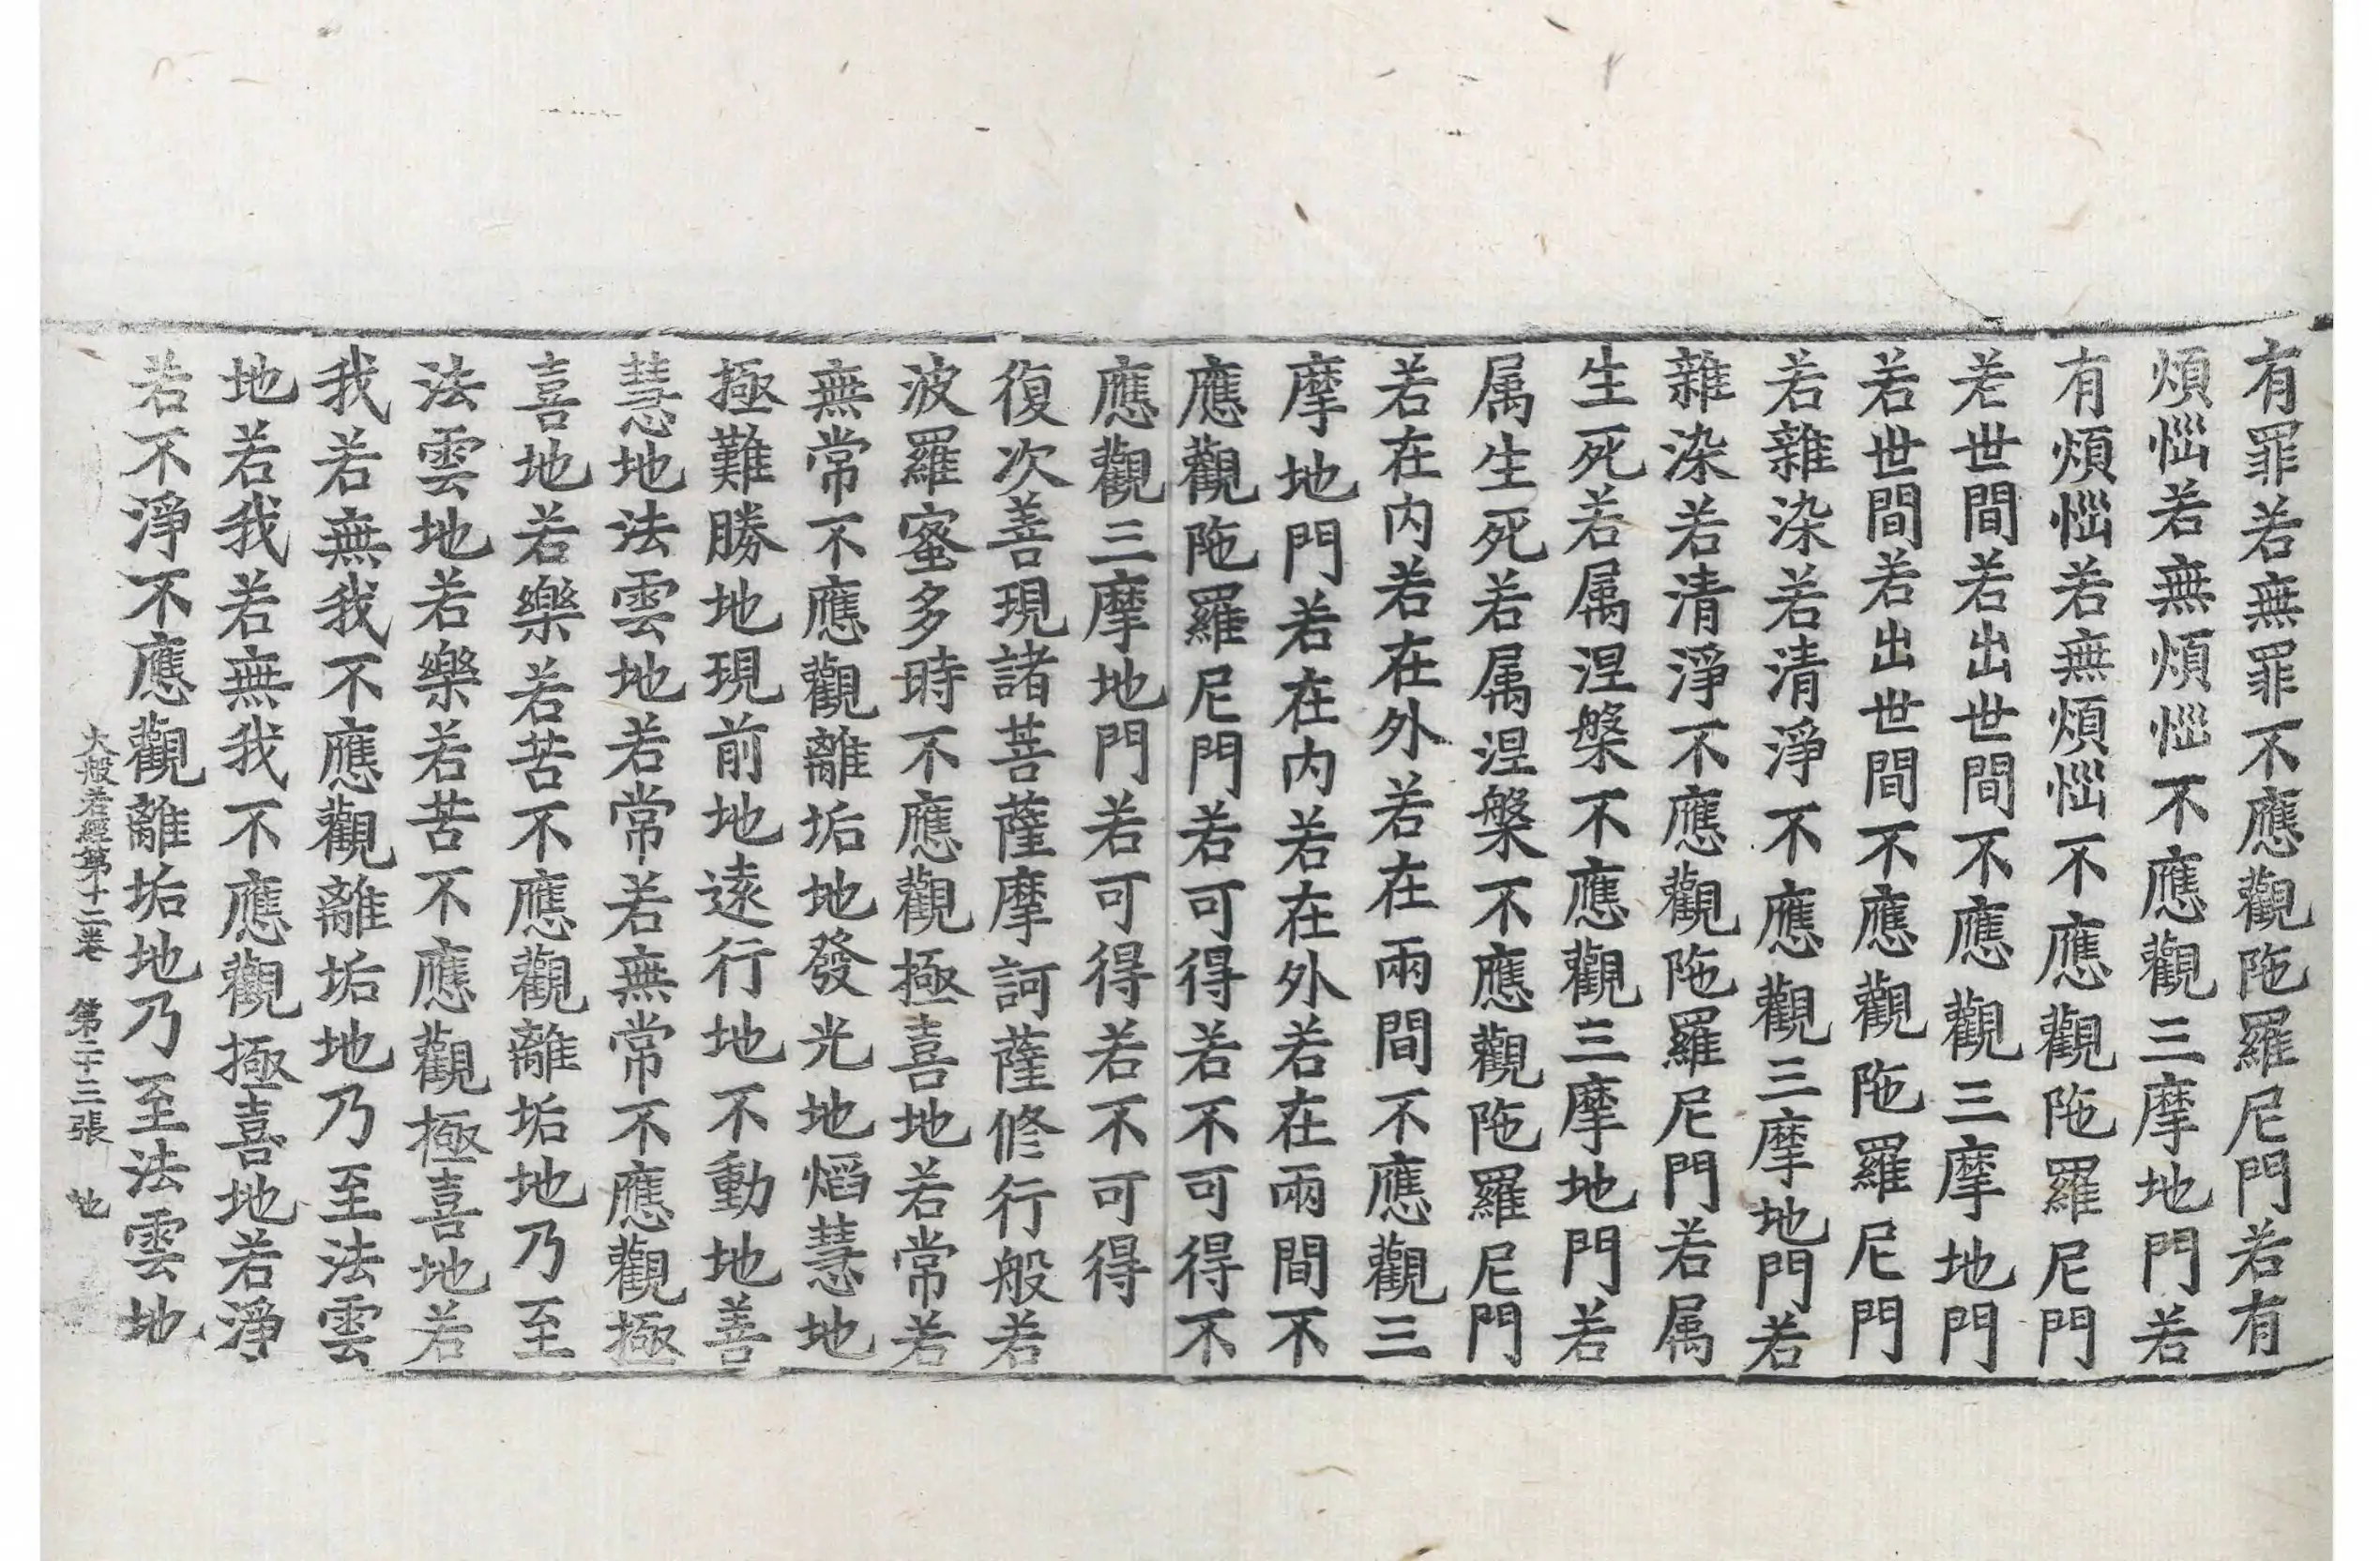 有罪若無罪不應觀陁羅尼門若有
煩惱若無煩惱不應觀三摩地門若
有煩惱若無煩惱不應觀陁羅尼門
若世間若出世間不應觀三摩地門
若世間若出世間不應觀陁羅尼門
若雜染若清淨不應觀三摩地門若
雜染若清淨不應觀陁羅尼門若属
生死若属涅槃不應觀三摩地門若
属生死若属涅槃不應觀陁羅尼門
若在内若在外若在兩間不應觀三
摩地門若在内若在外若在兩間不
應觀陁羅尼門若可得若不可得不
應觀三摩地門若可得若不可得
復次善現諸菩薩摩訶薩修行般若
波羅蜜多時不應觀極喜地若常若
無常不應觀離垢地發光地焰慧地
極難勝地現前地遠行地不動地善
慧地法雲地若常若無常不應觀極
喜地若樂若苦不應觀離垢地乃至
法雲地若樂若苦不應觀極喜地若
我若無我不應觀離垢地乃至法雲
地若我若無我不應觀極喜地若淨
若不淨不應觀離垢地乃至法雲地
大般若經第十二卷 第二十三張 地